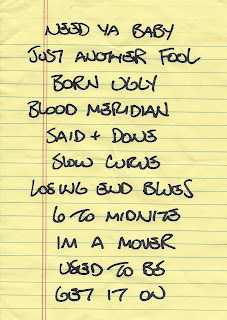 NEED YA BABY
JUST ANOTHER FOOL
BORN UGLY
BLOOD MERIDIAN
SAID + DONE
SLOW CURVE
LOSING END BLUES
6 TO MIDNITE
IM A MOVER
USED TO BE
GET IT ON